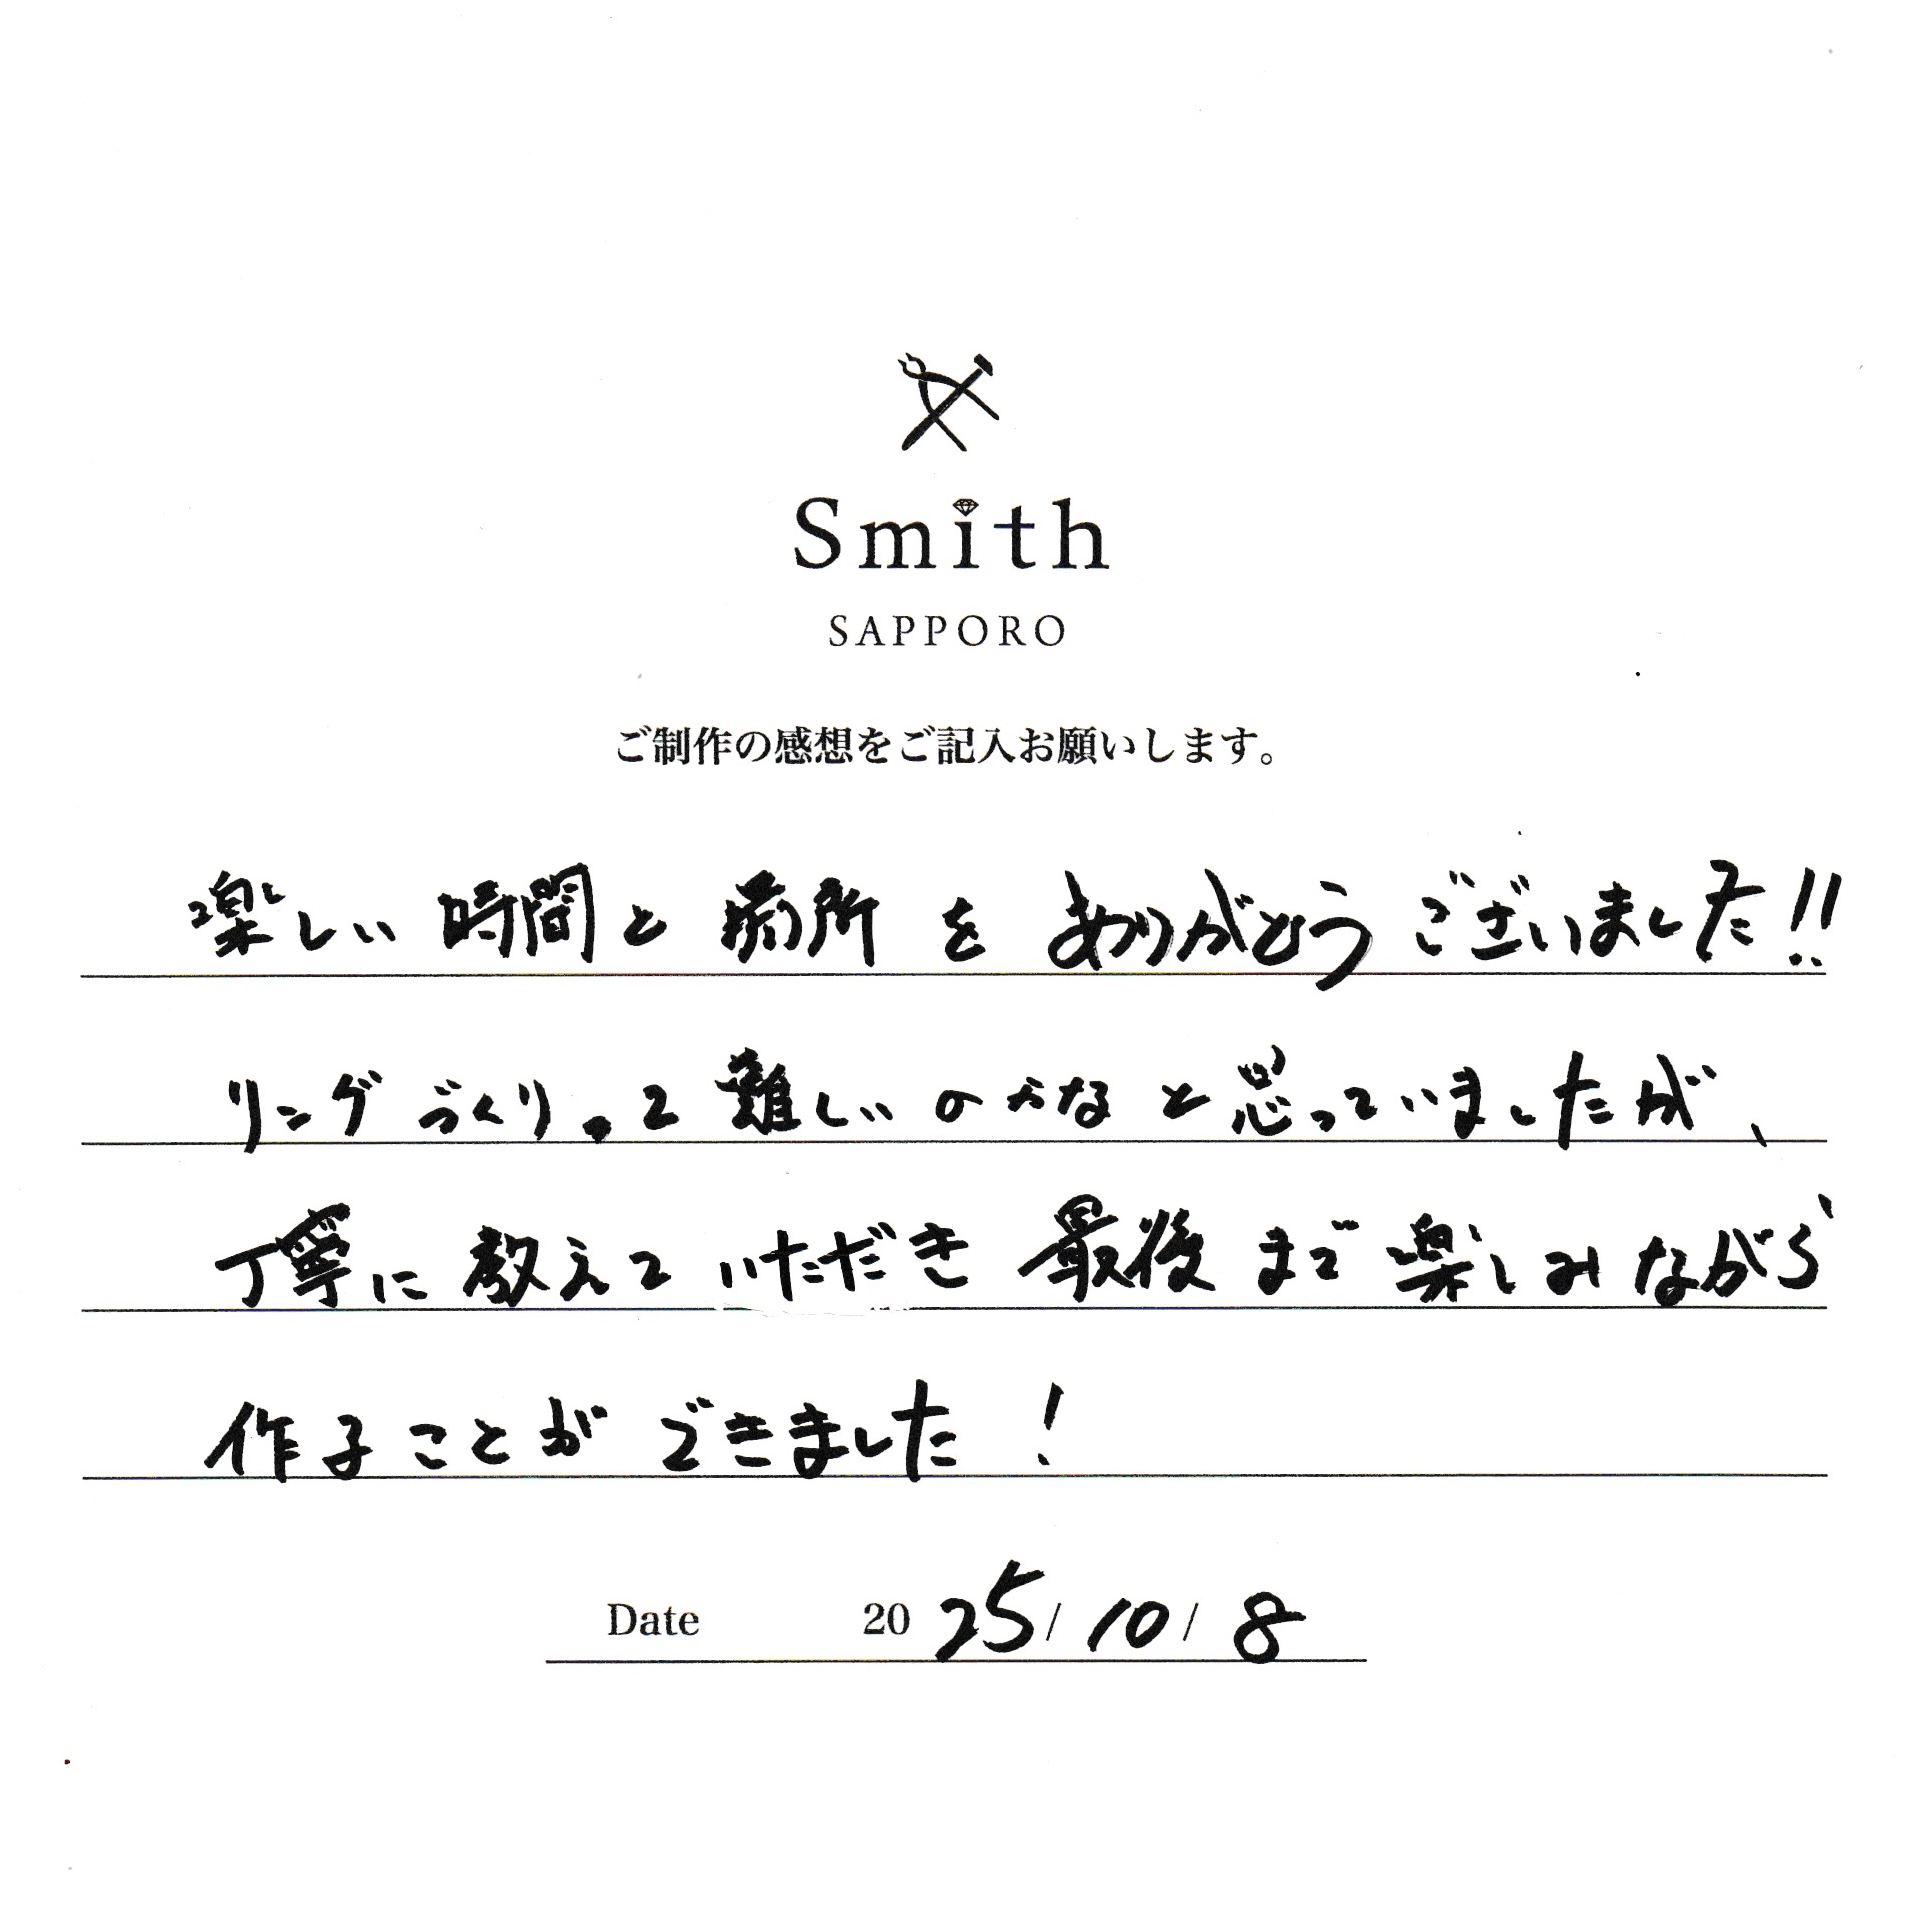 Smith
SAPPORO
ご制作の感想をご記入お願いします。
楽しい時間と場所をありがとうございました!!
リングづくりって難しいのかなと思っていましたが、
丁寧に教えていただき最後まで楽しみながら
作ることができました!
Date 2025/10/8